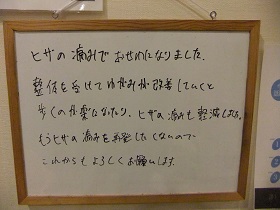 ヒザの痛みでおせわになりました。
整体を受けてゆがみが改善していくと
歩くのが楽になったり、ヒザの痛みも軽減しました。
もうヒザの痛みを再発したくないので
これからもよろしくお願いします